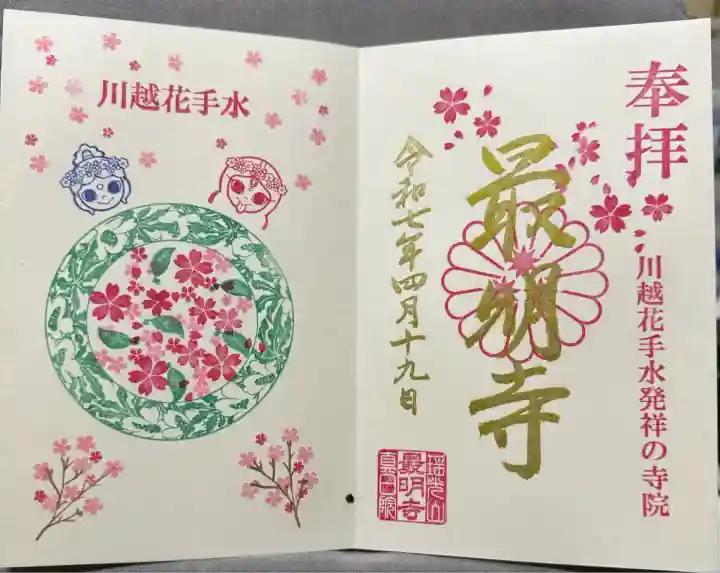 奉拝
川越花手水発祥の寺院
最明寺
令和七年四月十九日
瑶光山
最明寺
川越花手水